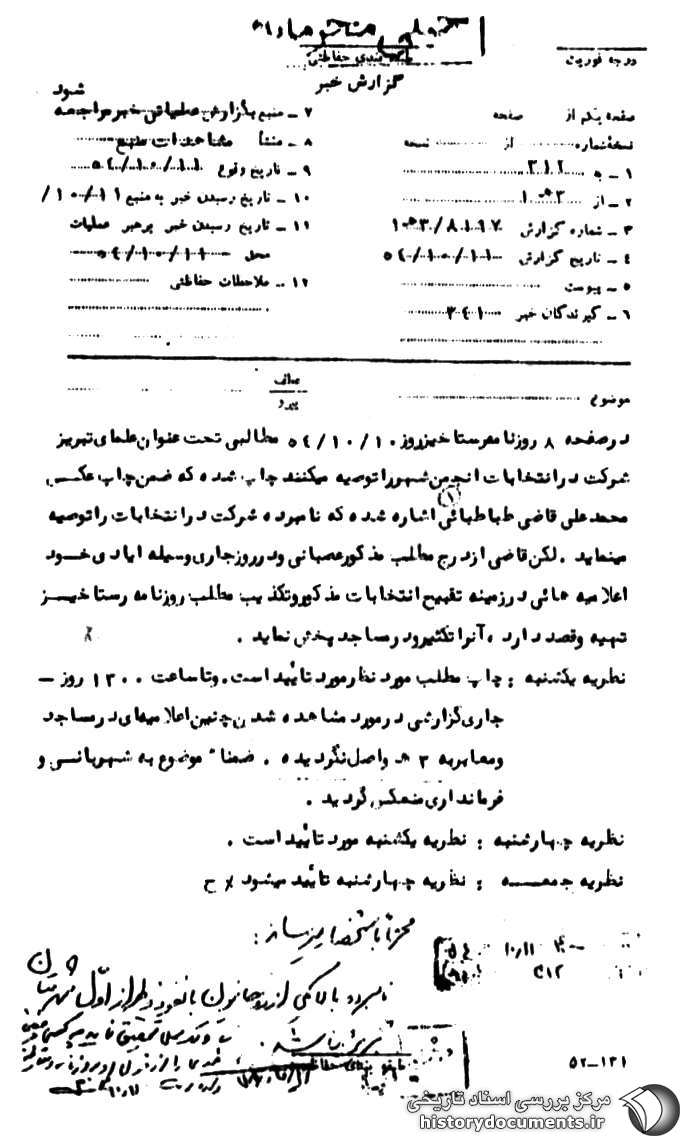 خیلی
طبقه بندی حفاظتی
درجه فوریت
گزارش خبر
صفحه یکم از صفحه
نسخه شماره از نسخه
۱ ـ به ۳۱۲
۲ ـ از ۱۰ ه‍ ۳
۳ ـ شماره گزارش ۱۰ ه‍ ۳/۸۱۹۷
۴ ـ تاریخ گزارش ۵۴/۱۰/۱۱
۵ ـ پیوست
۶ ـ گیرندگان خبر ۳۴۱
شود
۷ ـ منبع بگزارش عملیاتی خبر مراجعه
۸ ـ منشأ مشاهدات منبع
۹ ـ تاریخ وقوع ۵۴/۱۰/۱۱
۱۰ ـ تاریخ رسیدن خبر به منبع ۱۰/۱۱/
۱۱ ـ تاریخ رسیدن خبر برهبر عملیات
محل ۵۴/۱۰/۱۱
۱۲ ـ ملاحظات حفاظتی
موضوع
عطف
پیرو
درصفحه ۸ روزنامه رستاخیز روز ۵۴/۱۰/۱۰ مطالبی تحت عنوان علمای تبریز
شرکت در انتخابات انجمن شهر را توصیه میکنند چاپ شده که ضمن چاپ عکس
محمدعلی قاضی طباطبائی (۱) اشاره شده که نامبرده شرکت در انتخابات را توصیه
مینماید . لکن قاضی از درج مطالب مذکور عصبانی و در روز جاری وسیله ایادی خود
اعلامیه هائی در زمینه تقبیح انتخابات مذکور و تکذیب مطالب روزنامه رستاخیز
تهیه و قصد دارد ، آنرا تکثیر و در مساجد پخش نماید .
نظریه یکشنبه : چاپ مطلب مورد نظر مورد تائید است. و تا ساعت ۱۳۰۰ روز ـ
جاری گزارشی در مورد مشاهده شدن چنین اعلامیه‌ای در مساجد
و معابر به ۳ ه‍ واصل نگردیده . ضمناً موضوع به شهربانی و
فرمانداری منعکس گردید .
نظریه چهارشنبه : نظریه یکشنبه مورد تائید است .
نظریه جمعه : نظریه چهارشنبه تائید میشود / ح
نامبرده بالا یکی از روحانیون با نفوذ و طراز اول شهرستان
تبریز
طبقه بندی حفاظتی
۱۰/۱۱
۳۱۲
۵۲-۱۳۱
مرکز بررسی اسناد تاریخی
historydocuments.ir